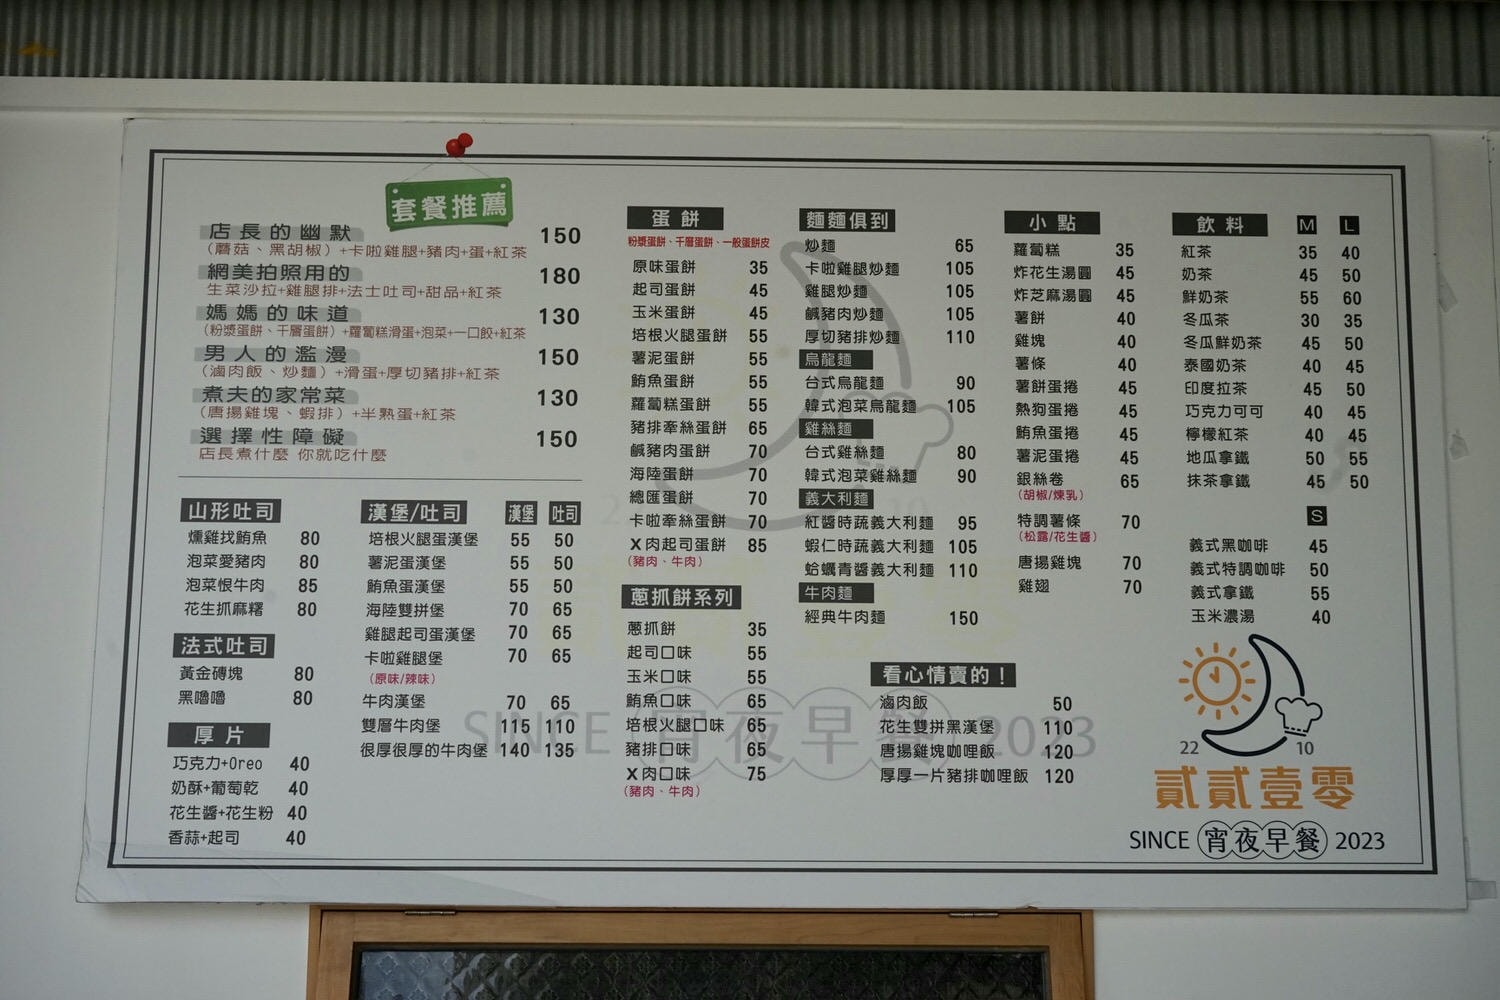 套餐推薦
店長的幽默 150
（蘑菇、黑胡椒）+卡啦雞腿+豬肉+蛋+紅茶
網美拍照用的 180
生菜沙拉+雞腿排+法士吐司+甜品+紅茶
媽媽的味道 130
（粉漿蛋餅、千層蛋餅）+蘿蔔糕滑蛋+泡菜+一口餃+紅茶
男人的濫漫 150
（滷肉飯、炒麵）+滑蛋+厚切豬排+紅茶
煮夫的家常菜 130
（唐揚雞塊、蝦排）+半熟蛋+紅茶
選擇性障礙 150
店長煮什麼 你就吃什麼
山形吐司
燻雞找鮪魚 80
泡菜愛豬肉 80
泡菜恨牛肉 85
花生抓麻糬 80
法式吐司
黃金磚塊 80
黑嚕嚕 80
厚片
巧克力+Oreo 40
奶酥+葡萄乾 40
花生醬+花生粉 40
香蒜+起司 40
漢堡/吐司 漢堡 吐司
培根火腿蛋漢堡 55 50
薯泥蛋漢堡 55 50
鮪魚蛋漢堡 55 50
海陸雙拼堡 70 65
雞腿起司蛋漢堡 70 65
卡啦雞腿堡 70 65
（原味/辣味）
牛肉漢堡 70 65
雙層牛肉堡 115 110
很厚很厚的牛肉堡 140 135
蛋餅
粉漿蛋餅、千層蛋餅、一般蛋餅皮
原味蛋餅 35
起司蛋餅 45
玉米蛋餅 45
培根火腿蛋餅 55
薯泥蛋餅 55
鮪魚蛋餅 55
蘿蔔糕蛋餅 55
豬排牽絲蛋餅 65
鹹豬肉蛋餅 70
海陸蛋餅 70
總匯蛋餅 70
卡啦牽絲蛋餅 70
X肉起司蛋餅 85
（豬肉、牛肉）
蔥抓餅系列
蔥抓餅 35
起司口味 55
玉米口味 55
鮪魚口味 65
培根火腿口味 65
豬排口味 65
X肉口味 75
（豬肉、牛肉）
麵麵俱到
炒麵 65
卡啦雞腿炒麵 105
雞腿炒麵 105
鹹豬肉炒麵 105
厚切豬排炒麵 110
烏龍麵
台式烏龍麵 90
韓式泡菜烏龍麵 105
雞絲麵
台式雞絲麵 80
韓式泡菜雞絲麵 90
義大利麵
紅醬時蔬義大利麵 95
蝦仁時蔬義大利麵 105
蛤蠣青醬義大利麵 110
牛肉麵
經典牛肉麵 150
看心情賣的！
滷肉飯 50
花生雙拼黑漢堡 110
唐揚雞塊咖哩飯 120
厚厚一片豬排咖哩飯 120
小點
蘿蔔糕 35
炸花生湯圓 45
炸芝麻湯圓 45
薯餅 40
雞塊 40
薯條 40
薯餅蛋捲 45
熱狗蛋捲 45
鮪魚蛋捲 45
薯泥蛋捲 45
銀絲卷 65
（胡椒/煉乳）
特調薯條 70
（松露/花生醬）
唐揚雞塊 70
雞翅 70
飲料 M L
紅茶 35 40
奶茶 45 50
鮮奶茶 55 60
冬瓜茶 30 35
冬瓜鮮奶茶 45 50
泰國奶茶 40 45
印度拉茶 45 50
巧克力可可 40 45
檸檬紅茶 40 45
地瓜拿鐵 50 55
抹茶拿鐵 45 50
S
義式黑咖啡 45
義式特調咖啡 50
義式拿鐵 55
玉米濃湯 40
22 10
貳貳壹零
SINCE 宵夜早餐 2023
SINCE 宵夜早餐 2023